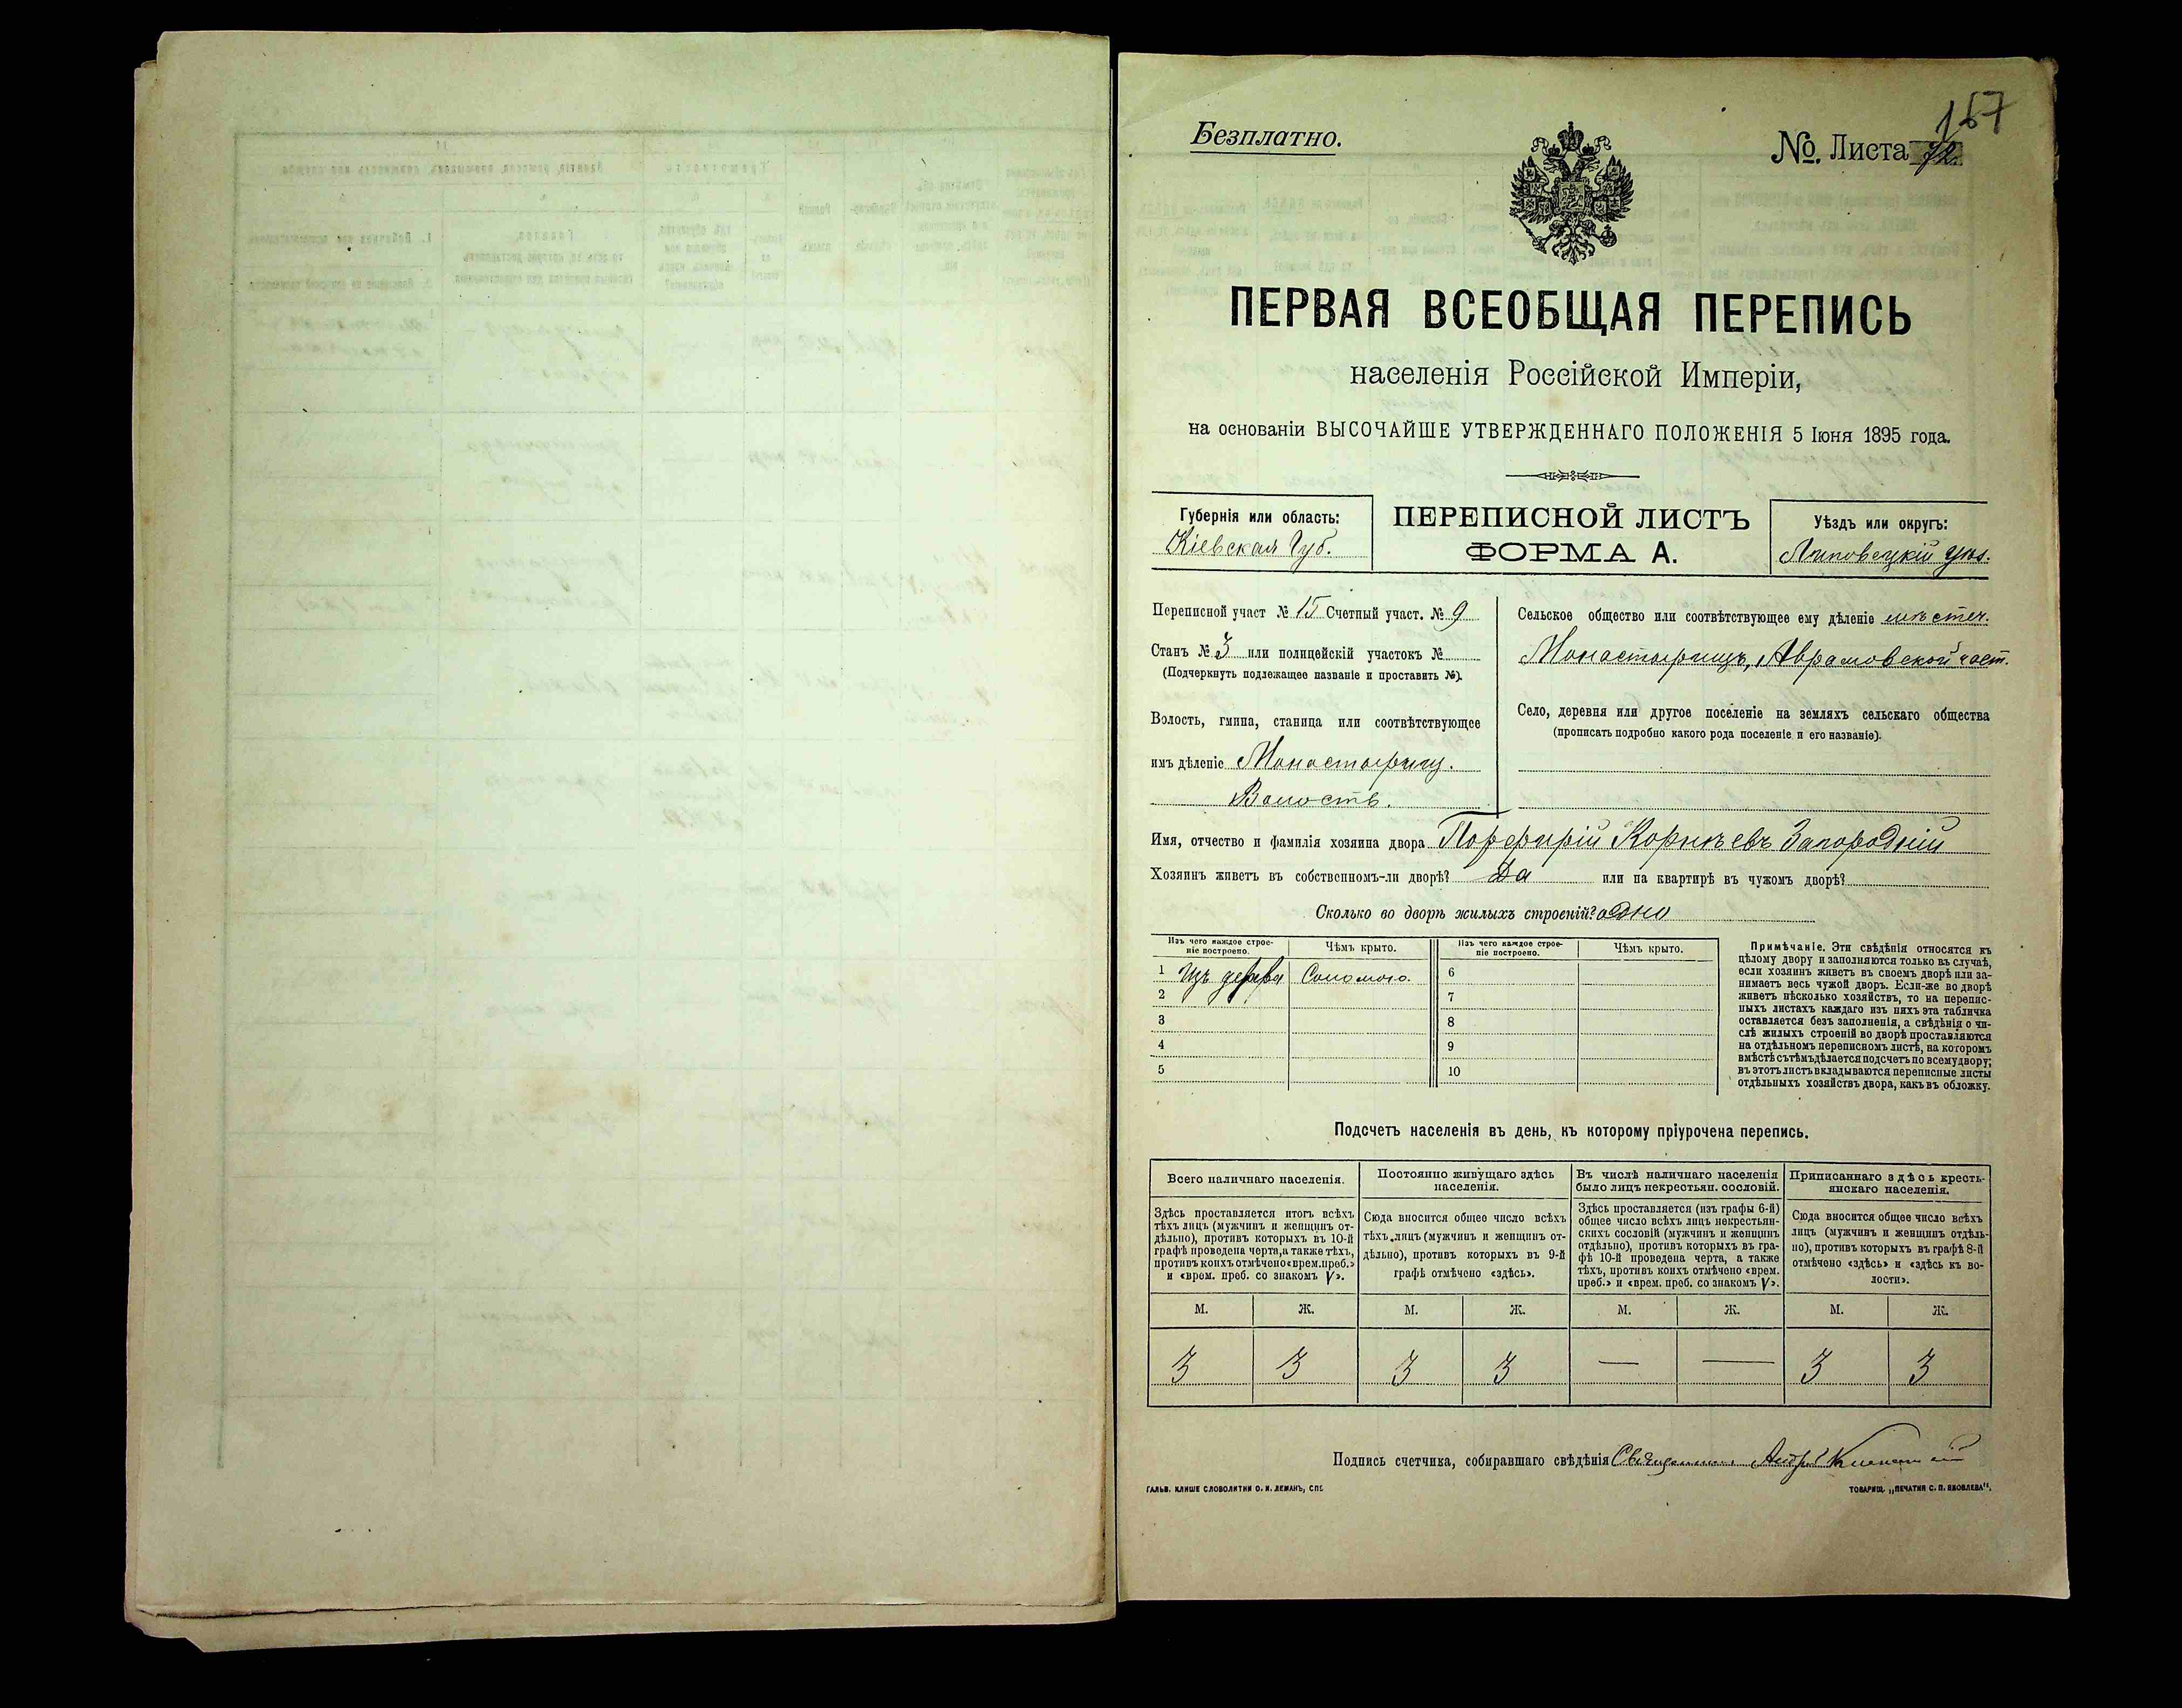 157
Безплатно.
№. Листа 72.
ПЕРВАЯ ВСЕОБЩАЯ ПЕРЕПИСЬ
населенія Россійской Имперіи,
на основаніи ВЫСОЧАЙШЕ УТВЕРЖДЕННАГО ПОЛОЖЕНІЯ 5 Іюня 1895 года.
Губернія или область:
Кіевская Губ.
ПЕРЕПИСНОЙ ЛИСТЪ
ФОРМА А.
Уѣздъ или округъ:
Липовецкій уѣз.
Переписной участ № 15 Счетный участ. № 9
Станъ № 3 или полицейскій участокъ №
(Подчеркнуть подлежащее названіе и проставить №).
Волость, гмина, станица или соотвѣтствующее
имъ дѣленіе Монастырищ.
Волость.
Сельское общество или соотвѣтствующее ему дѣленіе мѣстеч.
Монастырищъ, Аврамовской част.
Село, деревня или другое поселеніе на земляхъ сельскаго общества
(прописать подробно какого рода поселеніе и его названіе).
Имя, отчество и фамилія хозяина двора Порфирій Корнѣевъ Загородній
Хозяинъ живетъ въ собственномъ-ли дворѣ? Да или на квартирѣ въ чужомъ дворѣ?
Сколько во дворѣ жилыхъ строеній? одно
Изъ чего каждое строе-
ніе построено.
Чѣмъ крыто.
Изъ чего каждое строе-
ніе построено.
Чѣмъ крыто.
1 Изъ дерева Соломою. 6
2 7
3 8
4 9
5 10
Примѣчаніе. Эти свѣдѣнія относятся къ
цѣлому двору и заполняются только въ случаѣ,
если хозяинъ живетъ въ своемъ дворѣ или за-
нимаетъ весь чужой дворъ. Если-же во дворѣ
живетъ нѣсколько хозяйствъ, то на перепис-
ныхъ листахъ каждаго изъ нихъ эта табличка
оставляется безъ заполненія, а свѣдѣнія о чи-
слѣ жилыхъ строеній во дворѣ проставляются
на отдѣльномъ переписномъ листѣ, на которомъ
вмѣстѣ съ тѣмъ дѣлается подсчетъ по всему двору;
въ этотъ листъ вкладываются переписные листы
отдѣльныхъ хозяйствъ двора, какъ въ обложку.
Подсчетъ населенія въ день, къ которому пріурочена перепись.
Всего наличнаго населенія.
Здѣсь проставляется итогъ всѣхъ
тѣхъ лицъ (мужчинъ и женщинъ от-
дѣльно), противъ которыхъ въ 10-й
графѣ проведена черта, а также тѣхъ,
противъ коихъ отмѣчено «врем. преб.»
и «врем. преб. со знакомъ V».
Постоянно живущаго здѣсь
населенія.
Сюда вносится общее число всѣхъ
тѣхъ лицъ (мужчинъ и женщинъ от-
дѣльно), противъ которыхъ въ 9-й
графѣ отмѣчено «здѣсь».
Въ числѣ наличнаго населенія
было лицъ некрестьян. сословій.
Здѣсь проставляется (изъ графы 6-й)
общее число всѣхъ лицъ некрестьян-
скихъ сословій (мужчинъ и женщинъ
отдѣльно), противъ которыхъ въ гра-
фѣ 10-й проведена черта, а также
тѣхъ, противъ коихъ отмѣчено «врем.
преб.» и «врем. преб. со знакомъ V».
Приписаннаго здѣсь кресть-
янскаго населенія.
Сюда вносится общее число всѣхъ
лицъ (мужчинъ и женщинъ отдѣль-
но), противъ которыхъ въ графѣ 8-й
отмѣчено «здѣсь» и «здѣсь къ во-
лости».
М. Ж. М. Ж. М. Ж. М. Ж.
3 3 3 3 — — 3 3
Подпись счетчика, собиравшаго свѣдѣнія
ГАЛЬВ. КЛИШЕ СЛОВОЛИТНИ О. И. ЛЕМАНЪ, СПБ
ТОВАРИЩ. „ПЕЧАТНЯ С. П. ЯКОВЛЕВА".